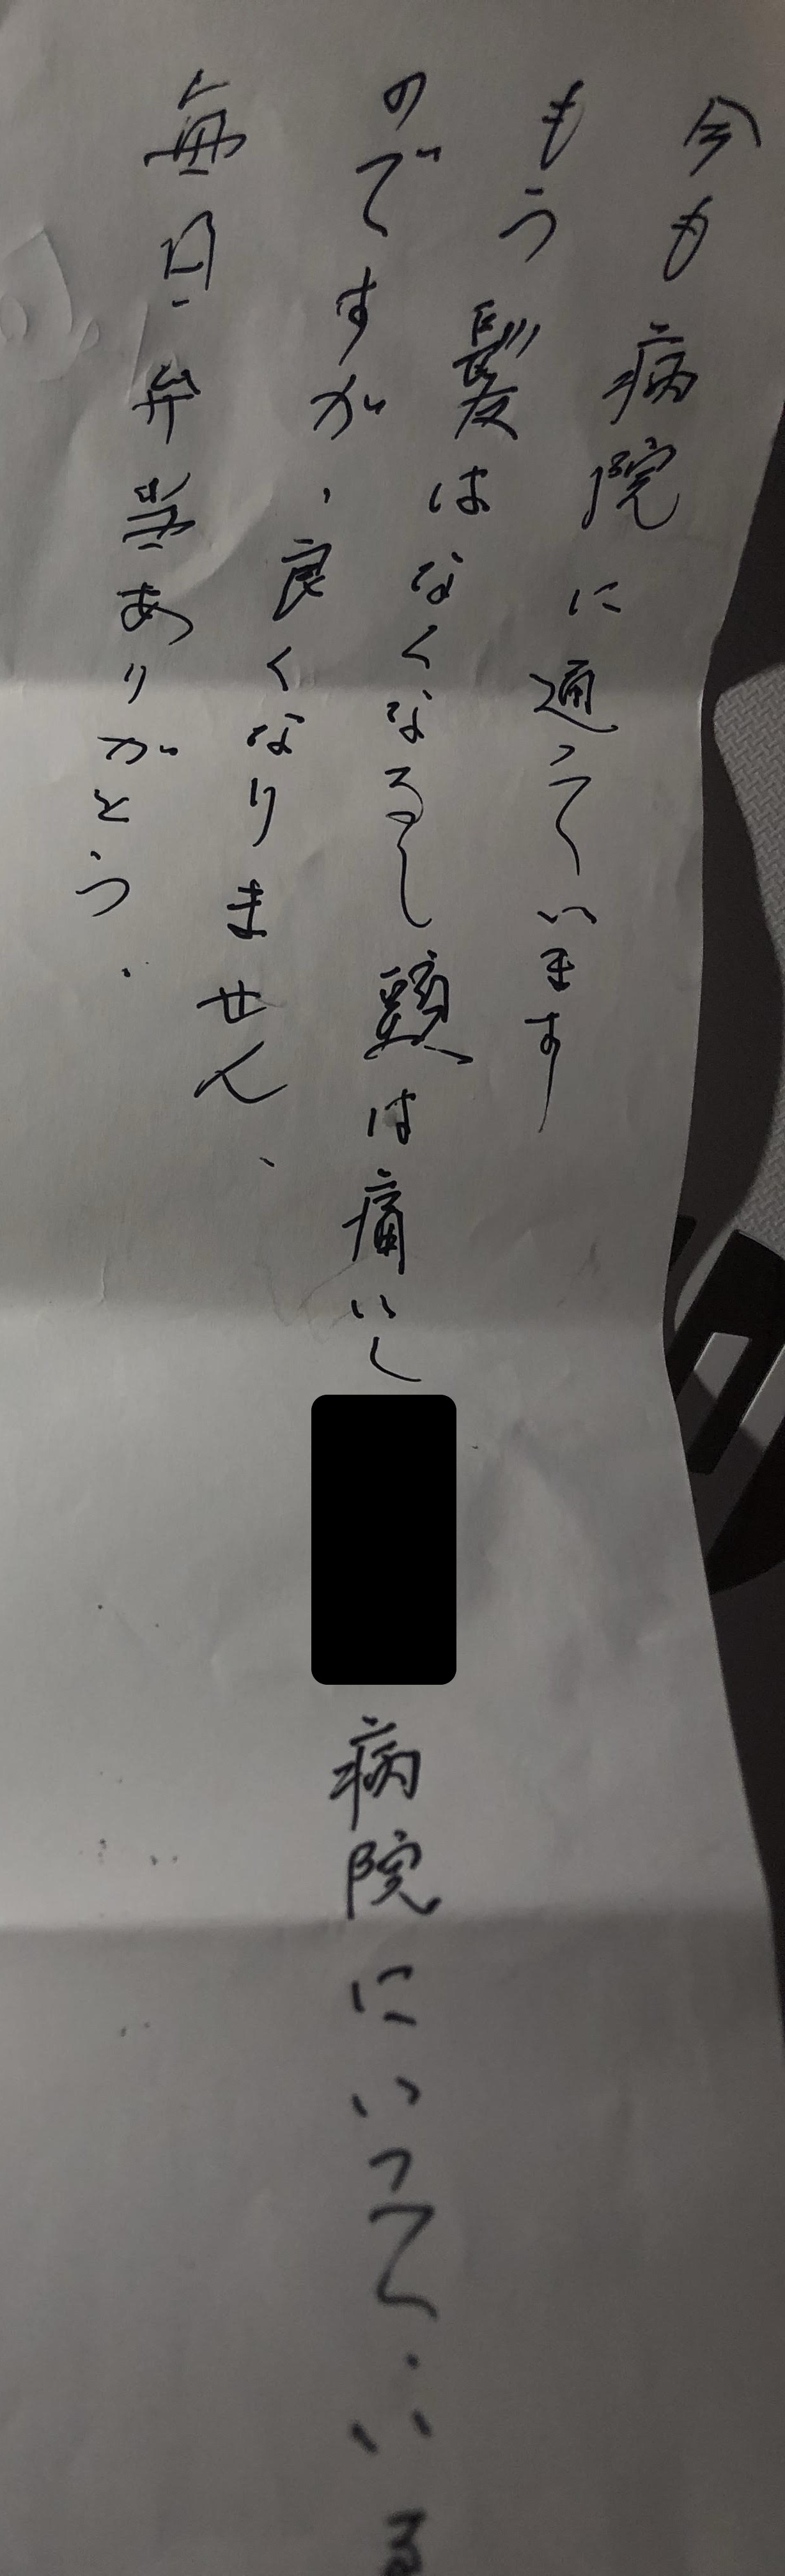 今も病院に通っています
もう髪はなくなるし頭は痛いし
病院にいっている
のですが、良くなりません、
毎日弁当ありがとう.